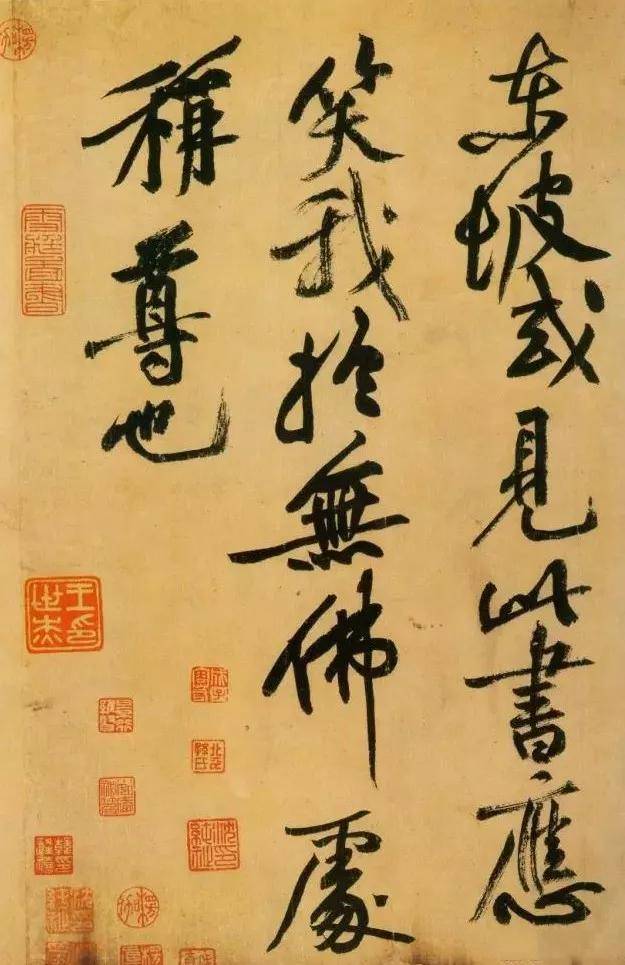 東坡或見此書應
笑我於無佛處
稱尊也
王世杰印